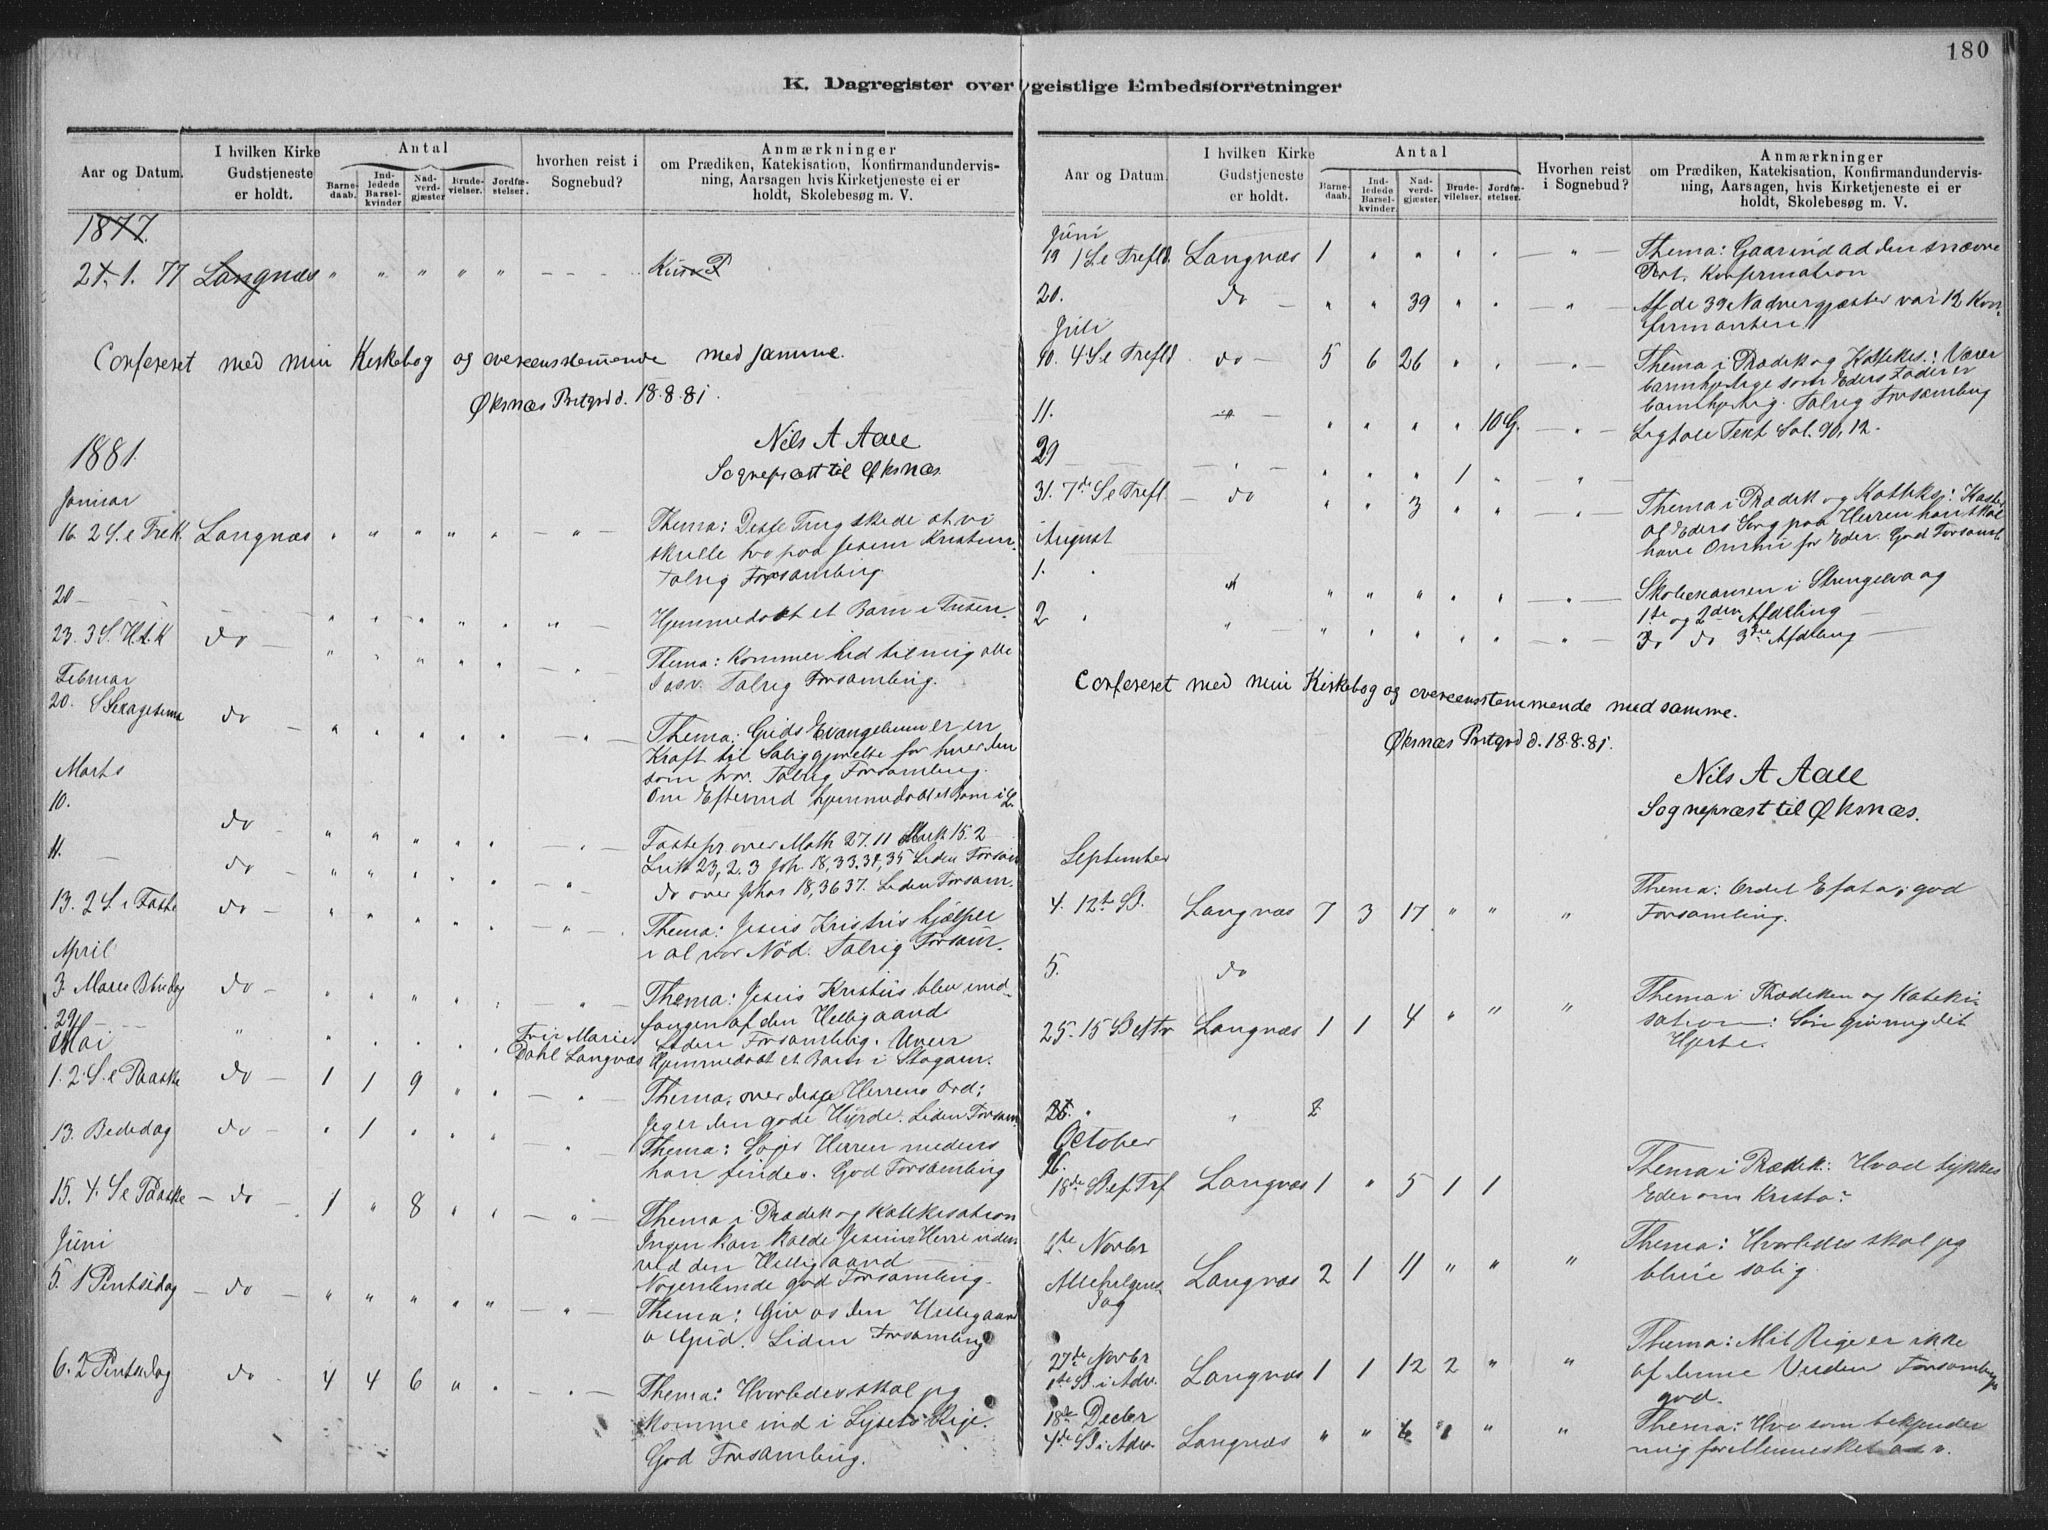 180
K. Dagregister over geistlige Embedsforretninger
Aar og Datum.
I hvilken Kirke Gudstjeneste er holdt.
Antal
Barne-daab.
Ind-ledede Barsel-kvinder
Nad-verd-gjæster
Brude-vielser.
Jordfæ-stelser.
hvorhen reist i Sognebud?
Anmærkninger
om Prædiken, Katekisation, Konfirmandundervis-
ning, Aarsagen hvis Kirketjeneste ei er
holdt, Skolebesøg m. V.
1877.
21.1.77 Langnæs " " " " "
Confereret med min Kirkebog og overeensstemmende med samme.
Øksnæs Prstgrd d. 18.8.81.
Nils A Aall
Sognepræst til Øksnæs.
1881.
Januar
16. 2 S. e Trek. Langnæs " " " " " — " — Thema: Dette Tung skede at vi
skulle tro paa Jesum Kristum.
Talrig Forsamling.
20 — Hjemmedøbt et Barn i
23. 3 S. H.3.K do Thema: Kommer hid til mig alle
Talrig Forsamling.
Februar
20. S Sexagesima do Thema: Guds Evangelium er en
Kraft til Saliggjørelse for hver den
som tror. Talrig Forsamling.
Om Eftermid hjemmedøbt et Barn i
Marts
10. do Fastepr over Math 27.11 Mark 15.2
Luk 23, 2.3 Joh. 18,33.34,35 Liden Forsam
11. — do do over Johs 18,36 37. Liden Forsam.
13. 2 S. i Faste do Thema: Jesus Kristus hjælper
i al vor Nød. Talrig Forsam.
April
3. Mariæ Bbudag do Thema: Jesus Kristus blev und-
fangen af den Helligaand
Liden Forsamling.
29 " Fru Marie
Dahl Langnæs Hjemmedøbt et Barn i
Mai
1. 2. S. e Paaske do 1 1 9 " " Thema, over disse Herrens Ord:
Jeg er den gode Hyrde. Liden Forsam
13. Bededag do " 1 " " " Thema: Søger Herren medens
han findes. God Forsamling
15. 4. S e Paaske — do 1 " 8 " " — " — Thema i Prædik og Katekisation
Ingen kan kalde Jesum Herre uden
ved den Helligaand
Nogenlunde god Forsamling.
Juni
5. 1 Pintsedag — do — " " " " " — " — Thema: Giv os den Helligaand
o Gud. Liden Forsamling
6. 2 Pintsedag do 4 4 6 " " — " — Thema: Hvorledes skal jeg
komme ind i Lysets Rige.
God Forsamling.
Aar og Datum.
I hvilken Kirke Gudstjeneste er holdt.
Antal
Barne-daab.
Ind-ledede Barsel-kvinder
Nad-verd-gjæster.
Brude-vielser.
Jordfæ-stelser.
Hvorhen reist i Sognebud?
Anmærkninger
om Prædiken, Katekisation, Konfirmandundervis-
ning, Aarsagen, hvis Kirketjeneste ei er
holdt, Skolebesøg m. V.
Juni
19 1 S. e Trefld. Langnæs 1 " " " " — " — Thema: Gaar ind ad den snævre
Port. Konfirmation
20. do — " " 39 " " — " — Af de 39 Nadvergjæster var 12 Kon-
firmanter
Juli
10. 4 S e Trefld do — 5 6 26 " " — " — Thema i Prædik og Katekes.: Værer
barmhjertige som Eders Fader er
barmhjertig. Talrig Forsamling
11. " " " " 10 G. — " — Ligtale Text Sal. 90, 12.
29 — " " " 1 " — " —
31. 7de S e Trefl. — do " " 3 " " — " — Thema i Prædik og Kateks: Kaster
al Eders Sorg paa Herren han skal
have Omhu for Eder. God Forsaml
August
1. " " " " " " — " — Skoleexamen i Strengelvaag
1ste og 2den Afdeling —
2 " " " " " " " — " — do do 3die Afdeling —
Confereret med min Kirkebog og overeensstemmende med samme.
Øksnæs Prstgrd d. 18.8.81.
Nils A Aall
Sognepræst til Øksnæs.
September
4. 12te S. Langnæs 7 3 17 " " " Thema: Ordet Efata, god
Forsamling.
5. do
25. 15 S ef Tr Langnæs 1 1 4 " " " Thema i Prædiken og Kateki-
sation: Søn giv mig dit
Hjerte.
26. " " 2
October
16.
18de S ef Trf Langnæs 1 " 5 1 1 Thema i Prædik: Hvad tykkes
Eder om Kristo?
1ste Novbr
Allehelgens Dag Langnæs 2 1 11 " " " Thema: Hvorledes skal jeg
blive salig.
27de Novbr
1ste S i Adv. Langnæs 1 1 12 2 " " Thema: Mit Rige er ikke
af denne Verden Forsamling
god.
18de Decbr
4de S i Adv. Langnæs " " 4 1 " " Thema: Hvo som bekjender
mig for Mennesket o s v.